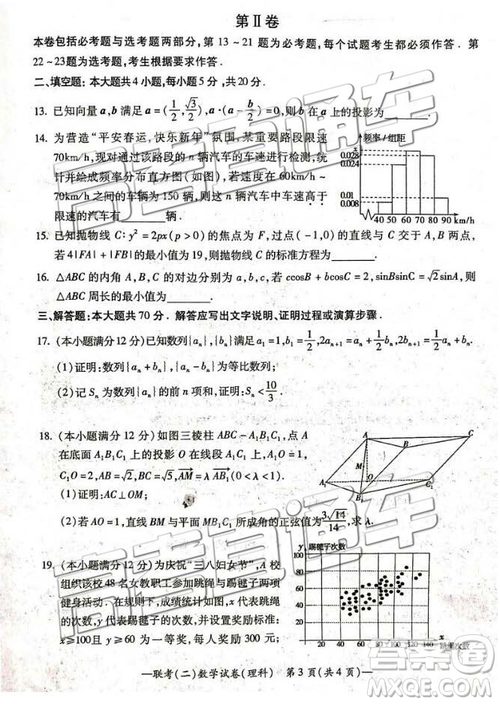 第Ⅱ卷
本卷包括必考题与选考题两部分,第13~21题为必考题,每个试题考生都必须作答.第
22~23题为选考题,考生根据要求作答.
二、填空题:本大题共4小题,每小题5分,共20分.
13. 已知向量a,b满足a=(1/2,√3/2),a·(a-b/2)=0,则b在a上的投影为
14. 为营造“平安春运,快乐新年”氛围,某重要路段限速
70km/h,现对通过该路段的n辆汽车的车速进行检测,统
计并绘成频率分布直方图(如图).若速度在60km/h~
70km/h之间的车辆为150辆,则这n辆汽车中车速高于
限速的汽车有______辆.
频率/组距
0.028
0.024
0.010
0.008
40 50 60 70 80 90 km/h
15. 已知抛物线C:y²=2px(p>0)的焦点为F,过点(-1,0)的直线与C交于A,B两点,
若4|FA|+|FB|的最小值为19,则抛物线C的标准方程为
16. △ABC的内角A,B,C的对边分别为a,b,c,若ccosB+bcosC=2,sinBsinC=
△ABC周长的最小值为
三、解答题:本大题共70分.解答应写出文字说明、证明过程或演算步骤.
17. (本小题满分12分)已知数列{aₙ},{bₙ}满足a₁=2,b₁=1/2,
(1)证明:数列{aₙ+bₙ},{aₙ-bₙ}为等比数列;
(2)记Sₙ为数列{aₙ}的前n项和,证明:Sₙ<10/3.
18. (本小题满分12分)如图三棱柱ABC-A₁B₁C₁中,点A
在底面A₁B₁C₁上的射影O在线段A₁C₁上,A₁O=1,
C₁O=2,AB₁=√5,AM=λAB₁(0<λ<1).
(1)证明:AC⊥OM;
(2)若AO=1,直线BO与平面MOC₁所成的角的正弦值为3√14/14,求λ.
A
B
C
M
O
A₁
B₁
C₁
19. (本小题满分12分)为庆祝“三八妇女节”,A校
组织该校48名女教职工参加跳绳与踢毽子两项
健身活动,以x表示跳绳次数,y表示踢毽子次
数(如图),成绩统计如图.若规定:
x≥100且y≥60为优秀,每人奖励300元;
踢毽子次数
y
100
80
60
40
20
0
20 40 60 80 100 120
跳绳次数
x
—联考(二)数学试卷(理科) 第3页(共4页)—
高考直通车
高考直通车